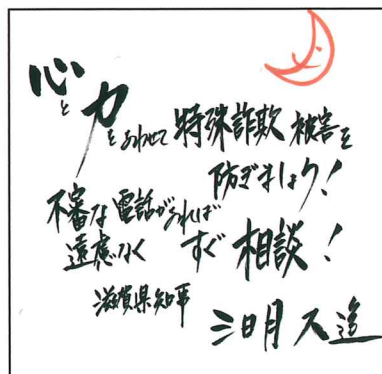 心と力とあわせて特殊詐欺被害を
防ぎましょう！
不審な電話があれば
遠慮なくすぐ相談！
滋賀県知事
三日月大造